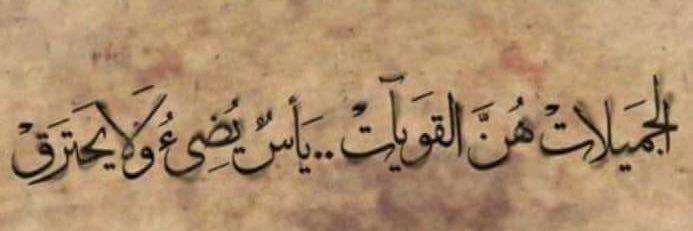 الجَمَيلاتْ هُنَّ القوَيآتْ .. يَأسٌ يُضِيءُ وَلَا يحَترَقْ